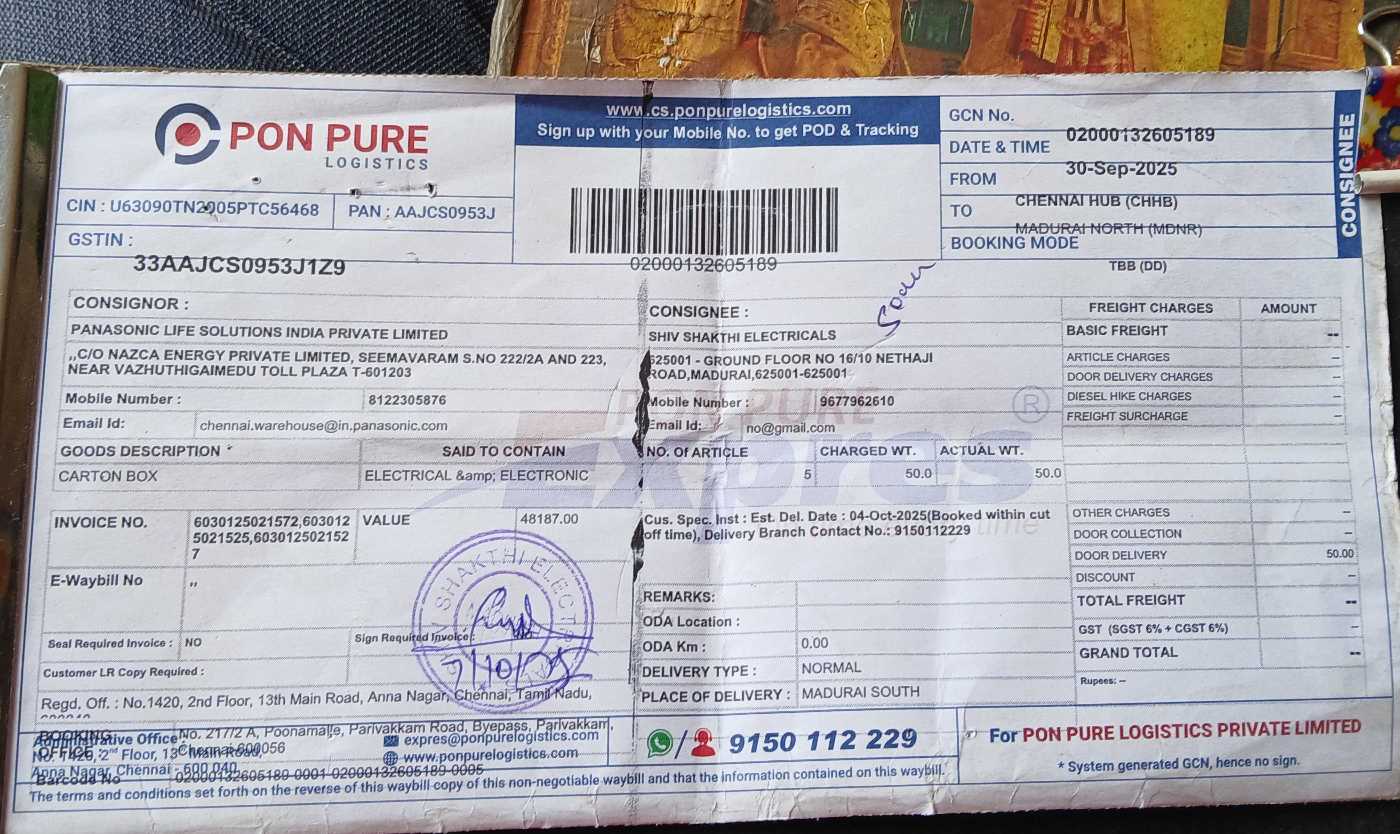 PON PURE
LOGISTICS
CIN : U63090TN2005PTC56468
PAN : AAJCS0953J
GSTIN :
33AAJCS0953J1Z9
www.cs.ponpurelogistics.com
Sign up with your Mobile No. to get POD & Tracking
02000132605189
GCN No.
02000132605189
DATE & TIME
30-Sep-2025
FROM
CHENNAI HUB (CHHB)
TO
MADURAI NORTH (MDNR)
BOOKING MODE
TBB (DD)
CONSIGNEE
CONSIGNOR :
PANASONIC LIFE SOLUTIONS INDIA PRIVATE LIMITED
,,C/O NAZCA ENERGY PRIVATE LIMITED, SEEMAVARAM S.NO 222/2A AND 223,
NEAR VAZHUTHIGAIMEDU TOLL PLAZA T-601203
Mobile Number : 8122305876
Email Id: chennai.warehouse@in.panasonic.com
CONSIGNEE :
SHIV SHAKTHI ELECTRICALS
625001 - GROUND FLOOR NO 16/10 NETHAJI
ROAD,MADURAI,625001-625001
Mobile Number : 9677962610
Email Id: no@gmail.com
PON PURE
Expres
®
time
GOODS DESCRIPTION SAID TO CONTAIN NO. Of ARTICLE CHARGED WT. ACTUAL WT.
CARTON BOX ELECTRICAL &amp; ELECTRONIC 5 50.0 50.0
INVOICE NO. 6030125021572,603012
5021525,603012502152
7
VALUE 48187.00
E-Waybill No ,,
Seal Required Invoice : NO
Sign Required Invoice :
Customer LR Copy Required :
SHAKTHI ELECT
7/10/25
Cus. Spec. Inst : Est. Del. Date : 04-Oct-2025(Booked within cut
off time), Delivery Branch Contact No.: 9150112229
REMARKS:
ODA Location :
ODA Km : 0.00
DELIVERY TYPE : NORMAL
PLACE OF DELIVERY : MADURAI SOUTH
FREIGHT CHARGES AMOUNT
BASIC FREIGHT --
ARTICLE CHARGES –
DOOR DELIVERY CHARGES –
DIESEL HIKE CHARGES –
FREIGHT SURCHARGE –
OTHER CHARGES –
DOOR COLLECTION –
DOOR DELIVERY 50.00
DISCOUNT –
TOTAL FREIGHT --
GST (SGST 6% + CGST 6%) –
GRAND TOTAL --
Rupees: –
Regd. Off. : No.1420, 2nd Floor, 13th Main Road, Anna Nagar, Chennai, Tamil Nadu,
BOOKING
OFFICE :
No. 217/2 A, Poonamalle, Parivakkam Road, Byepass, Parivakkam,
Chennai-600056
Administrative Office
No. 1420, 2nd Floor, 13th Main Road,
Anna Nagar, Chennai - 600 040
Barcode No 02000132605189-0001-02000132605189-0005
expres@ponpurelogistics.com
www.ponpurelogistics.com
/ 9150 112 229
For PON PURE LOGISTICS PRIVATE LIMITED
* System generated GCN, hence no sign.
The terms and conditions set forth on the reverse of this non-negotiable waybill copy of this non-negotiable waybill and that the information contained on this waybill.